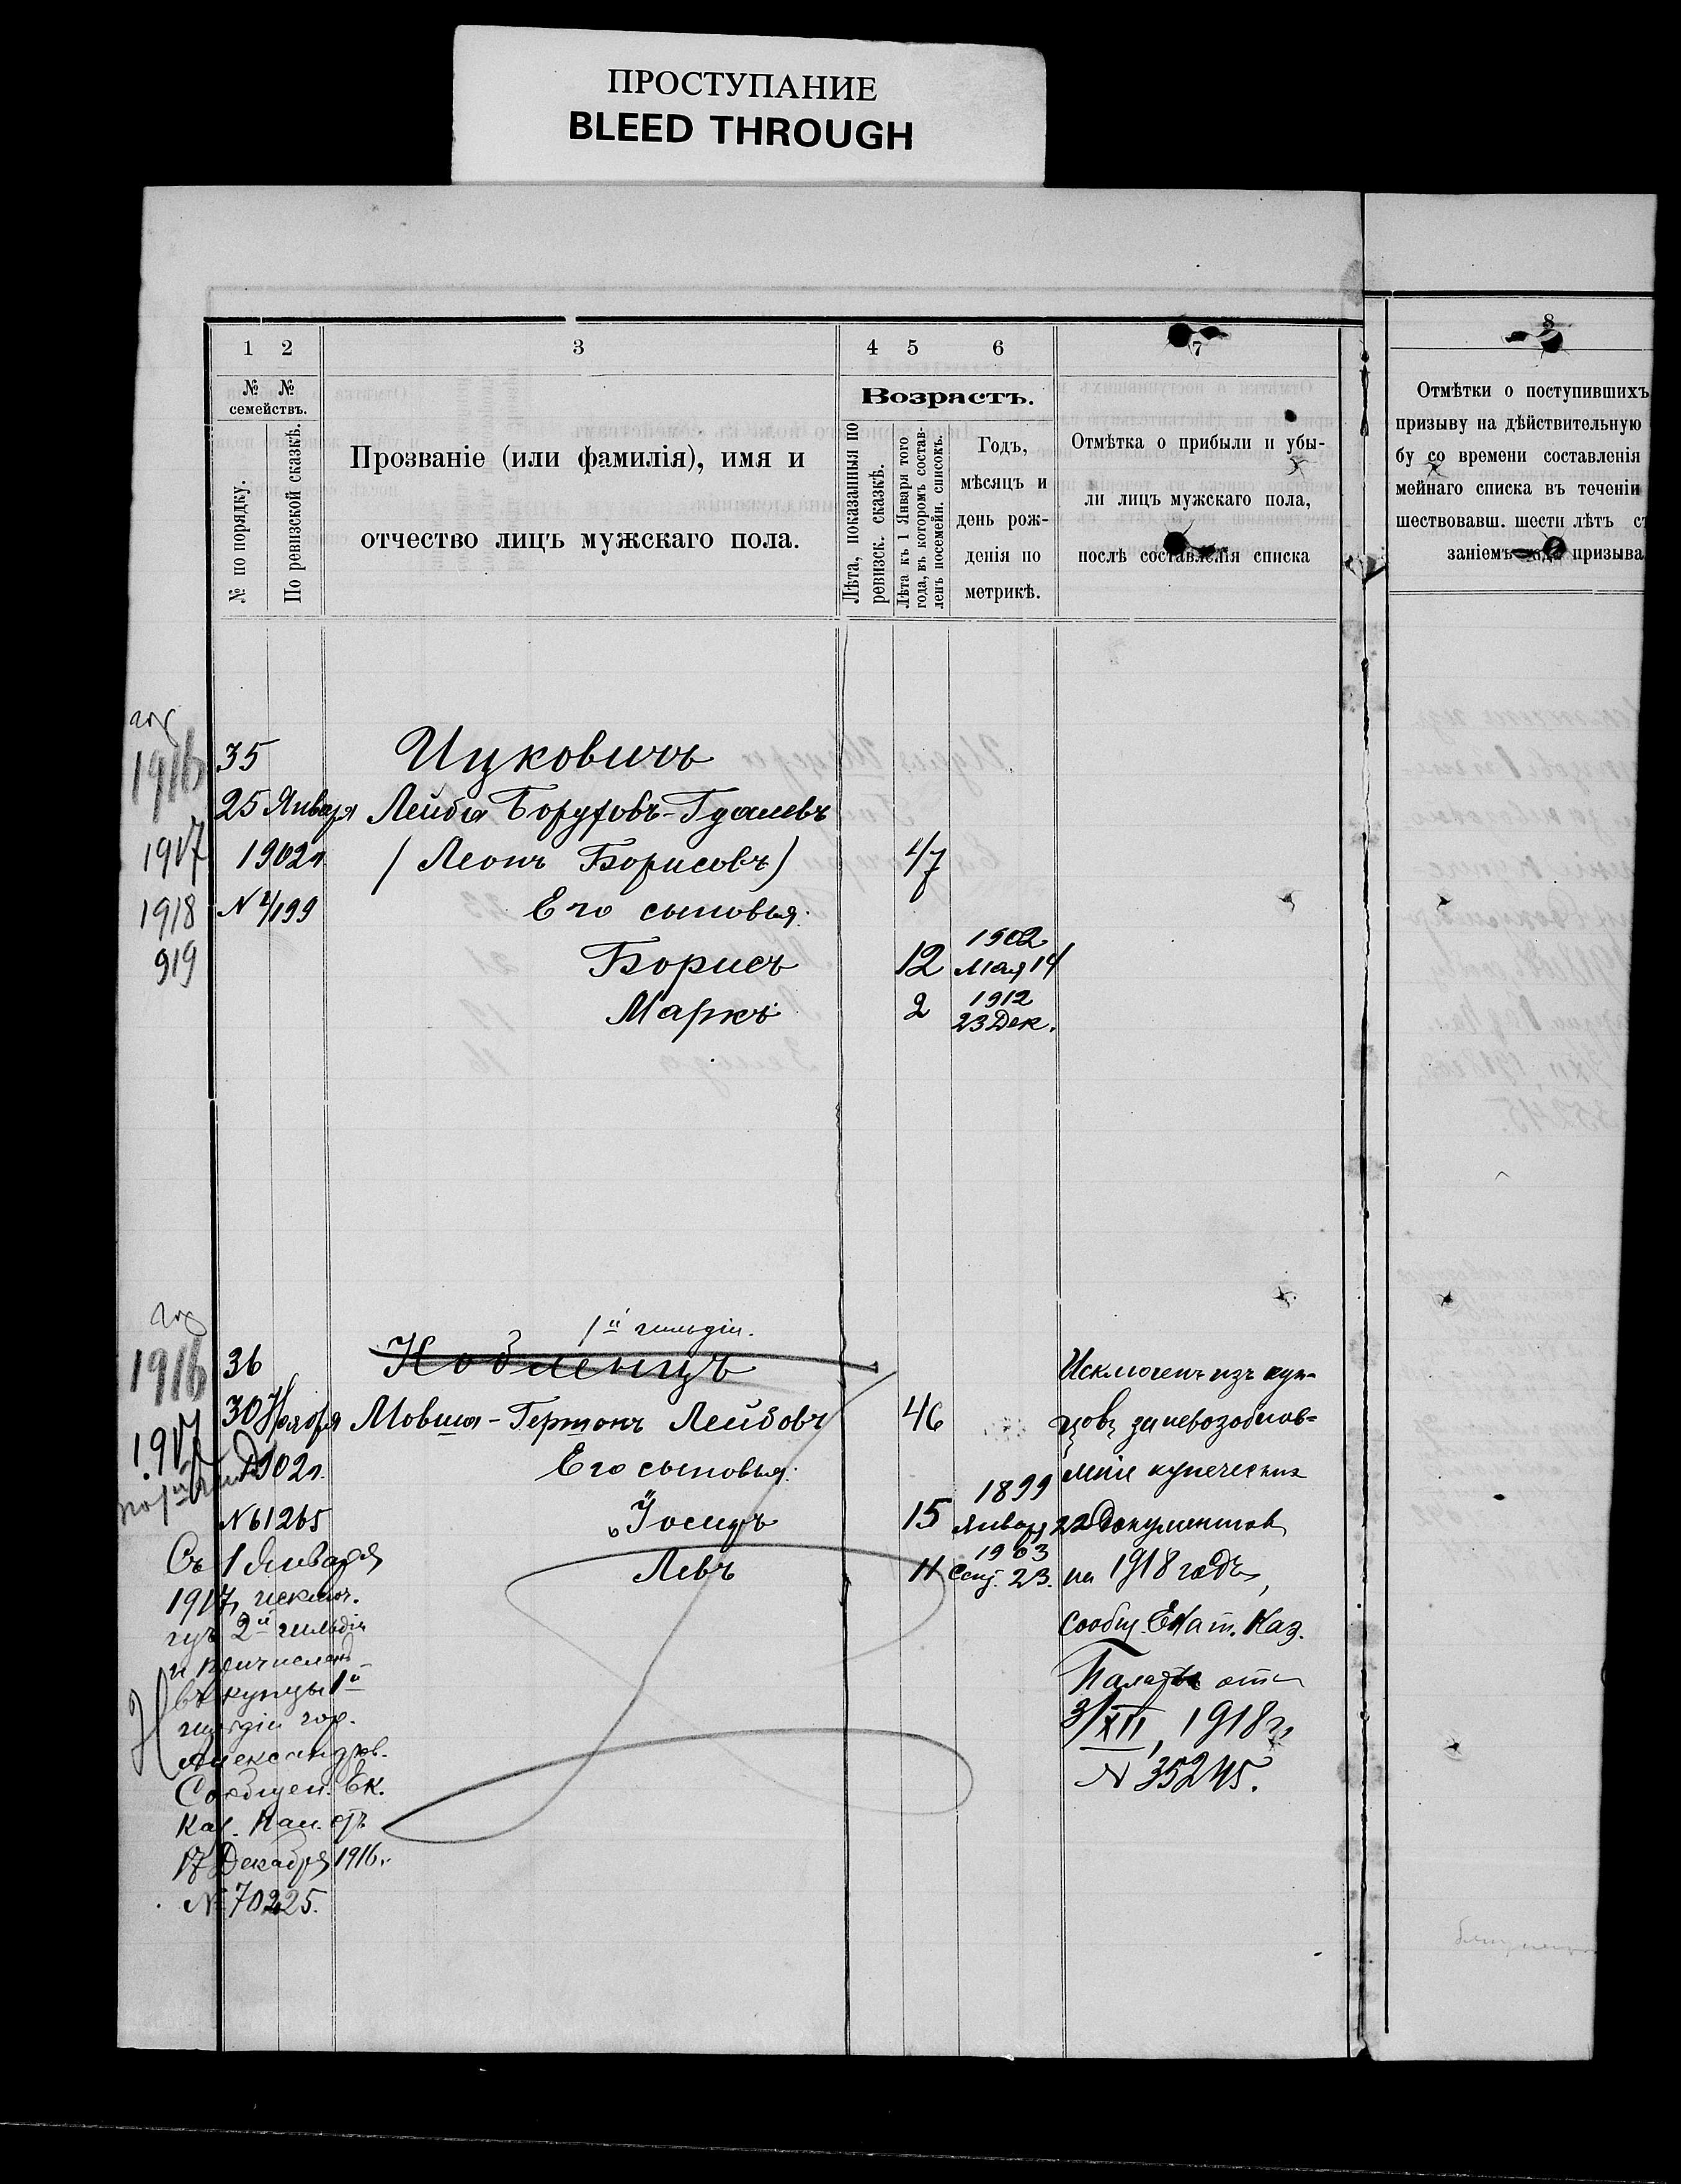 ПРОСТУПАНИЕ
BLEED THROUGH
1 2 3 4 5 6 7 8
№ № семействъ.
№ по порядку.
По ревизской сказкѣ.
Прозваніе (или фамилія), имя и
отчество лицъ мужскаго пола.
Возрастъ.
Лѣта, показанныя по
ревизск. сказкѣ.
Лѣта къ 1 Января того
года, въ которомъ состав-
ленъ посемейн. списокъ.
Годъ,
мѣсяцъ и
день рож-
денія по
метрикѣ.
Отмѣтка о прибыли и убы-
ли лицъ мужскаго пола,
послѣ составленія списка
Отмѣтки о поступившихъ
призыву на дѣйствительную
бу со времени составленія
мейнаго списка въ теченіи
шествовавш. шести лѣтъ
заніемъ года призыва
1916 35 Ицковичъ
25 Января Лейба Боруховъ-Гдалевъ
1917 1902 г. (Леонъ Борисовъ) 47
1918 № 4199 Его сыновья:
919 Борисъ 12 1902 Мая 14
Маркъ 2 1912 23 Дек.
1й гильдіи.
1916 36 Кобленцъ
1917 30 Ноября Мовша-Гертонъ Лейбовъ 46
1902 г. Его сыновья:
№ 61265 Іосифъ 15 1899 Января 22
Левъ 11 1903 Сент. 23.
Исключенъ изъ куп-
цовъ за невозобнов-
леніе купеческихъ
документовъ
на 1918 годъ,
сообщ. Екат. Каз.
Палаты отъ
3/XII, 1918 г.
№ 35245.
по 1й гильд
Съ 1 Января
1917 г. исключ.
изъ 2й гильдіи
и причисленъ
въ купцы 1й
гильдіи гор.
Александров.
Сообщен. Ек.
Каз. Пал. отъ
17 Декабря 1916 г.
№ 70225.